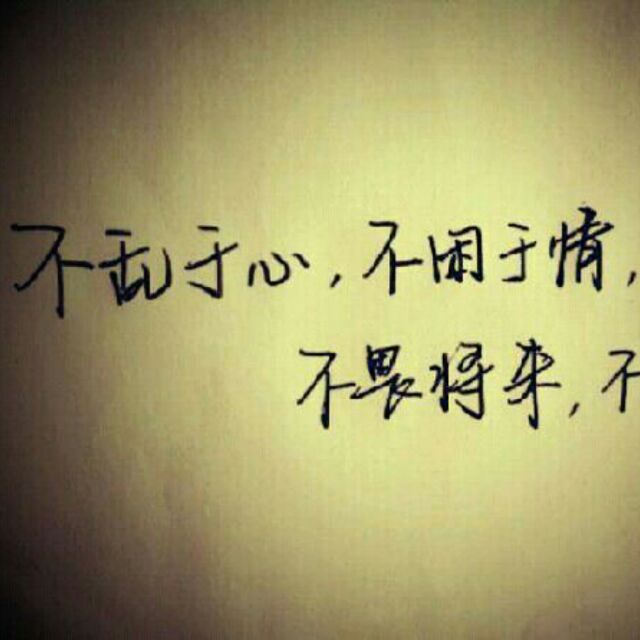 不乱于心,不困于情,
不畏将来,不